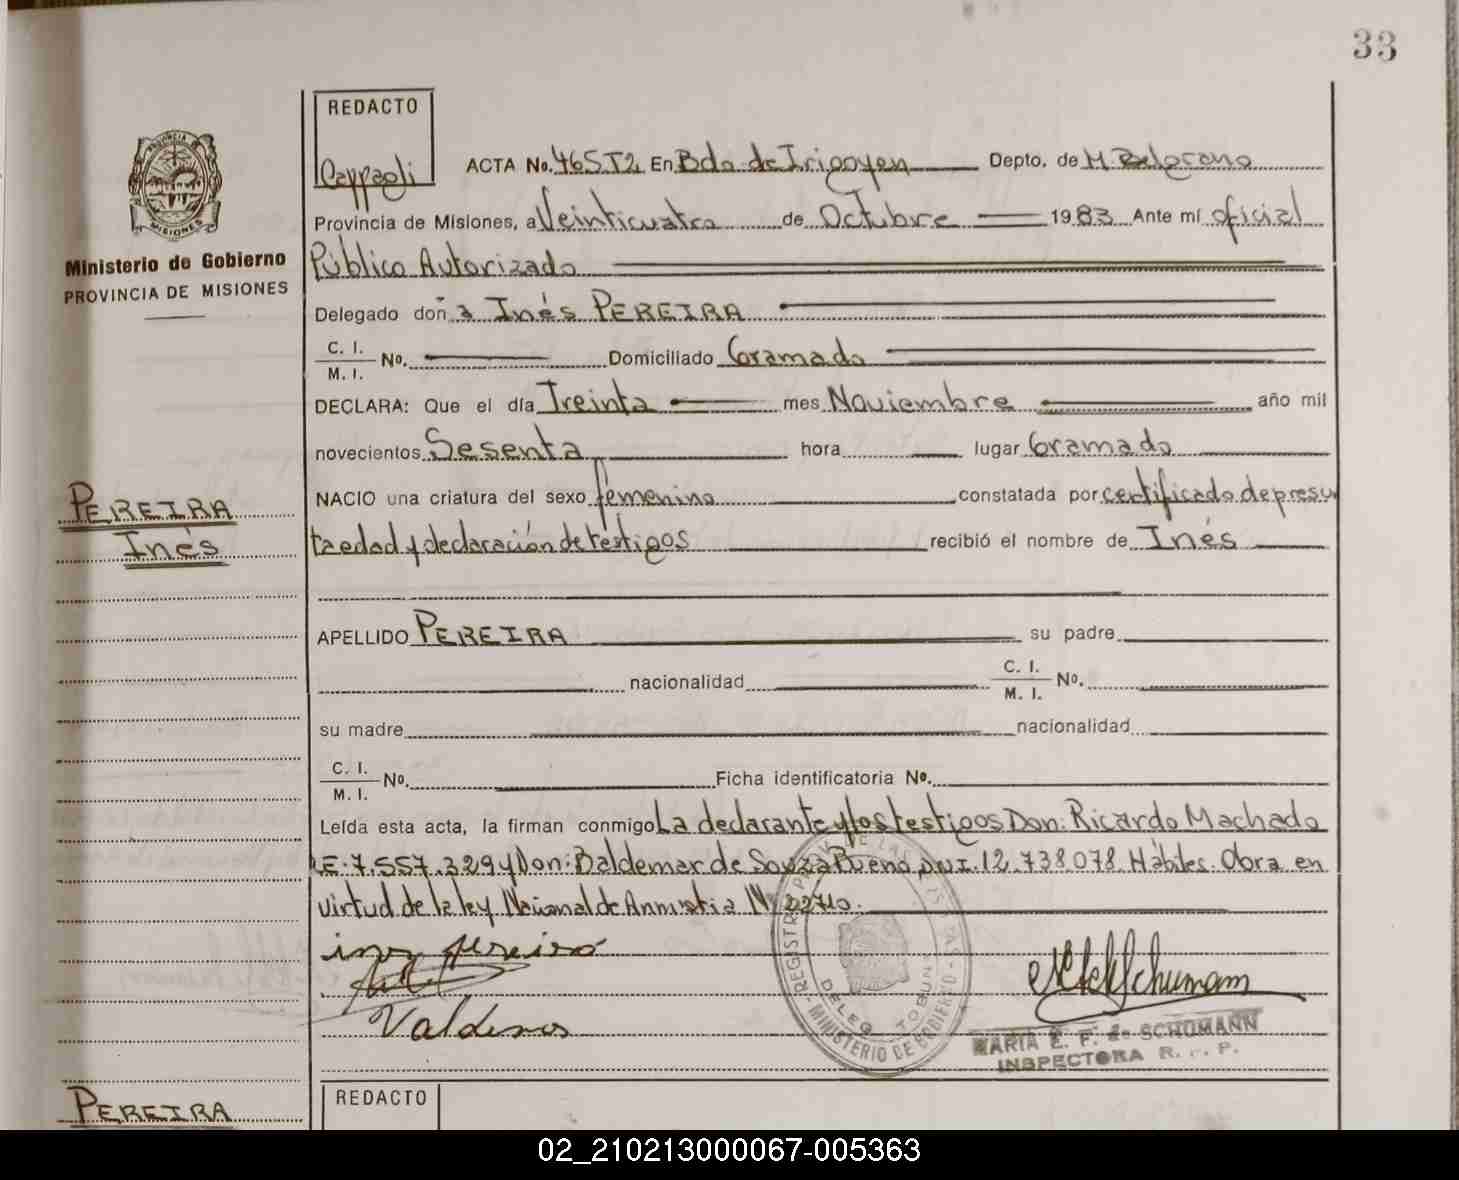 33
REDACTO
Cappaoli
ACTA No. 465T2 En Bdo de Irigoyen Depto. de M Belgrano
Provincia de Misiones, a Veinticuatro de Octubre 1983 Ante mí oficial
Público Autorizado
Delegado doñ a Inés PEREIRA
C. I.
M. I.
No. Domiciliado Gramado
DECLARA: Que el día Treinta mes Noviembre año mil
novecientos Sesenta hora lugar Gramado
NACIO una criatura del sexo femenino constatada por certificado de presu
ta edad y declaración de testigos recibió el nombre de Inés
APELLIDO PEREIRA su padre
nacionalidad C. I.
M. I.
No.
su madre nacionalidad
C. I.
M. I.
No. Ficha identificatoria No.
Leída esta acta, la firman conmigo La declarante y los testigos Don: Ricardo Machado
LE. 7.557.329 y Don: Baldemar de Souza Bueno D.N.I. 12.738.078 Hábiles. Obra en
virtud de la ley Nacional de Amnistia Nº 22710.
inez pereira
Valdemos
MINISTERIO DE GOBIERNO
DELEG TOBUN
MARIA E. F. de SCHUMANN
INSPECTORA R. P. P.
MISIONES
Ministerio de Gobierno
PROVINCIA DE MISIONES
PEREIRA
Inés
PEREIRA
REDACTO
02_210213000067-005363